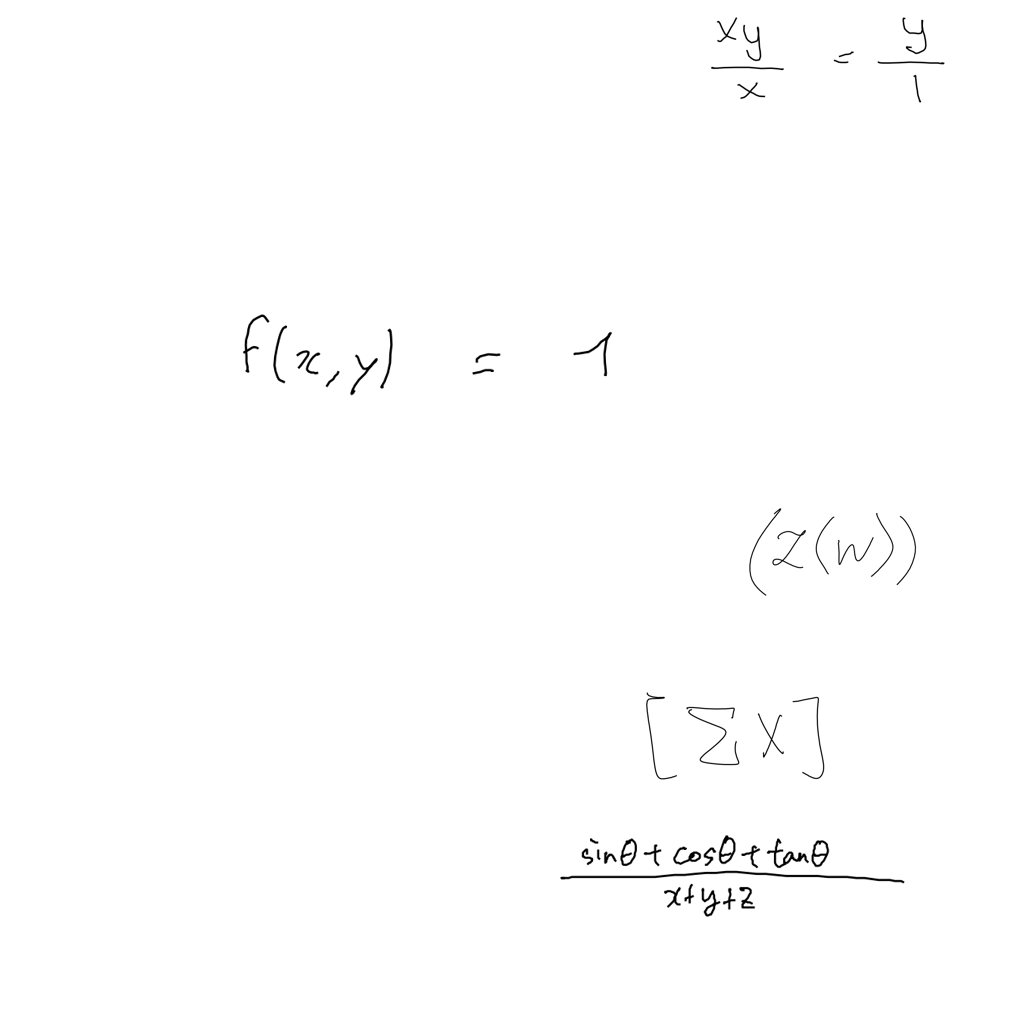 \frac{xy}{x} = \frac{y}{1}
f(x,y) = 1
(z(w))
[\sum x]
\frac{\sin\theta + \cos\theta + \tan\theta}{x+y+z}